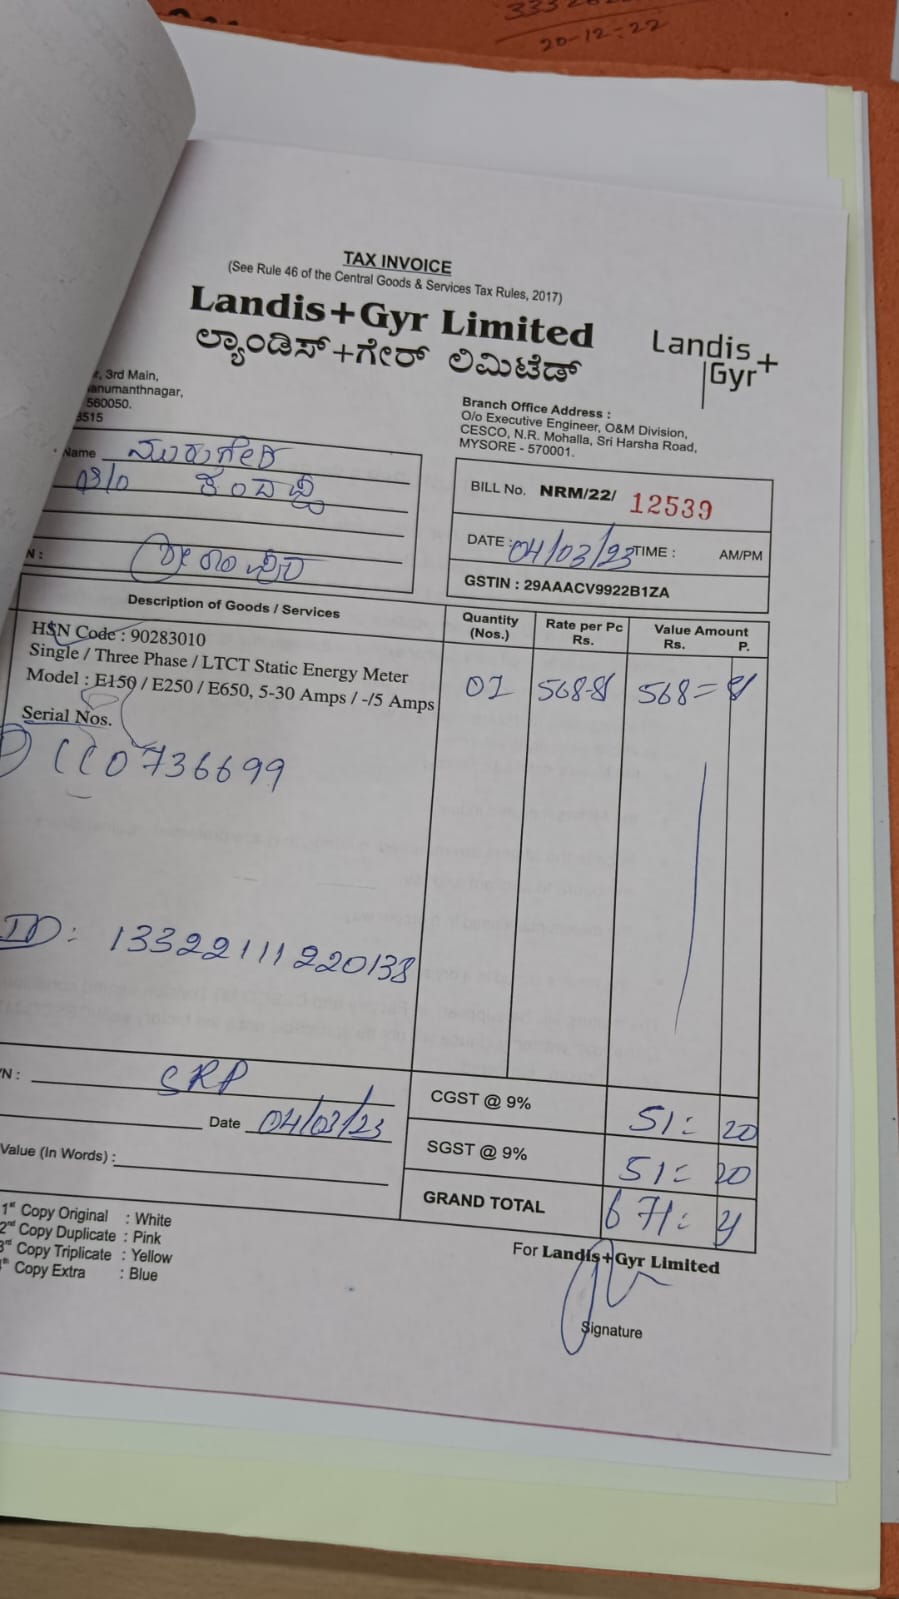 20-12-22
TAX INVOICE
(See Rule 46 of the Central Goods & Services Tax Rules, 2017)
Landis+Gyr Limited
ಲ್ಯಾಂಡಿಸ್+ಗೇರ್ ಲಿಮಿಟೆಡ್
Landis+
Gyr
, 3rd Main,
anumanthnagar,
560050.
3515
Branch Office Address :
O/o Executive Engineer, O&M Division,
CESCO, N.R. Mohalla, Sri Harsha Road,
MYSORE - 570001.
Name
S/o
N :
BILL No. NRM/22/ 12539
DATE : 04/03/23 TIME : AM/PM
GSTIN : 29AAACV9922B1ZA
Description of Goods / Services
Quantity (Nos.)
Rate per Pc Rs.
Value Amount Rs. P.
HSN Code : 90283010
Single / Three Phase / LTCT Static Energy Meter
Model : E150 / E250 / E650, 5-30 Amps / -/5 Amps
01 568-8 568=8
Serial Nos.
0736699
ID: 13322111220138
/N : SRP
Date 04/03/23
Value (In Words) :
CGST @ 9% 51= 20
SGST @ 9% 51= 20
GRAND TOTAL 671=
1st Copy Original : White
2nd Copy Duplicate : Pink
3rd Copy Triplicate : Yellow
th Copy Extra : Blue
For Landis+Gyr Limited
Signature